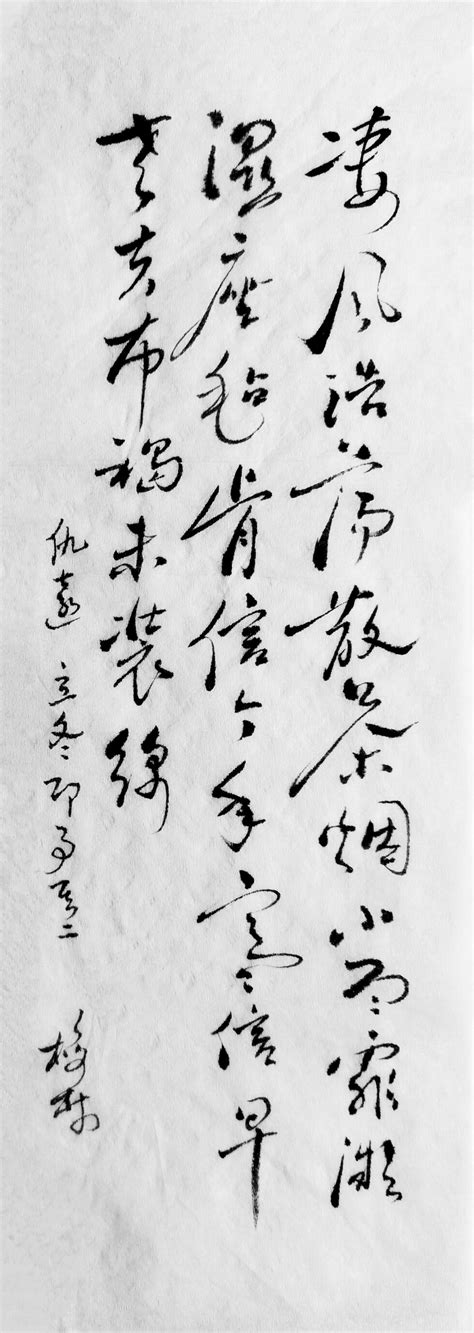 凄风浩荡散茶烟小雨霏微
湿座毡肯信今年寒信早
老夫布褐未装绵
仇远立冬即事其二